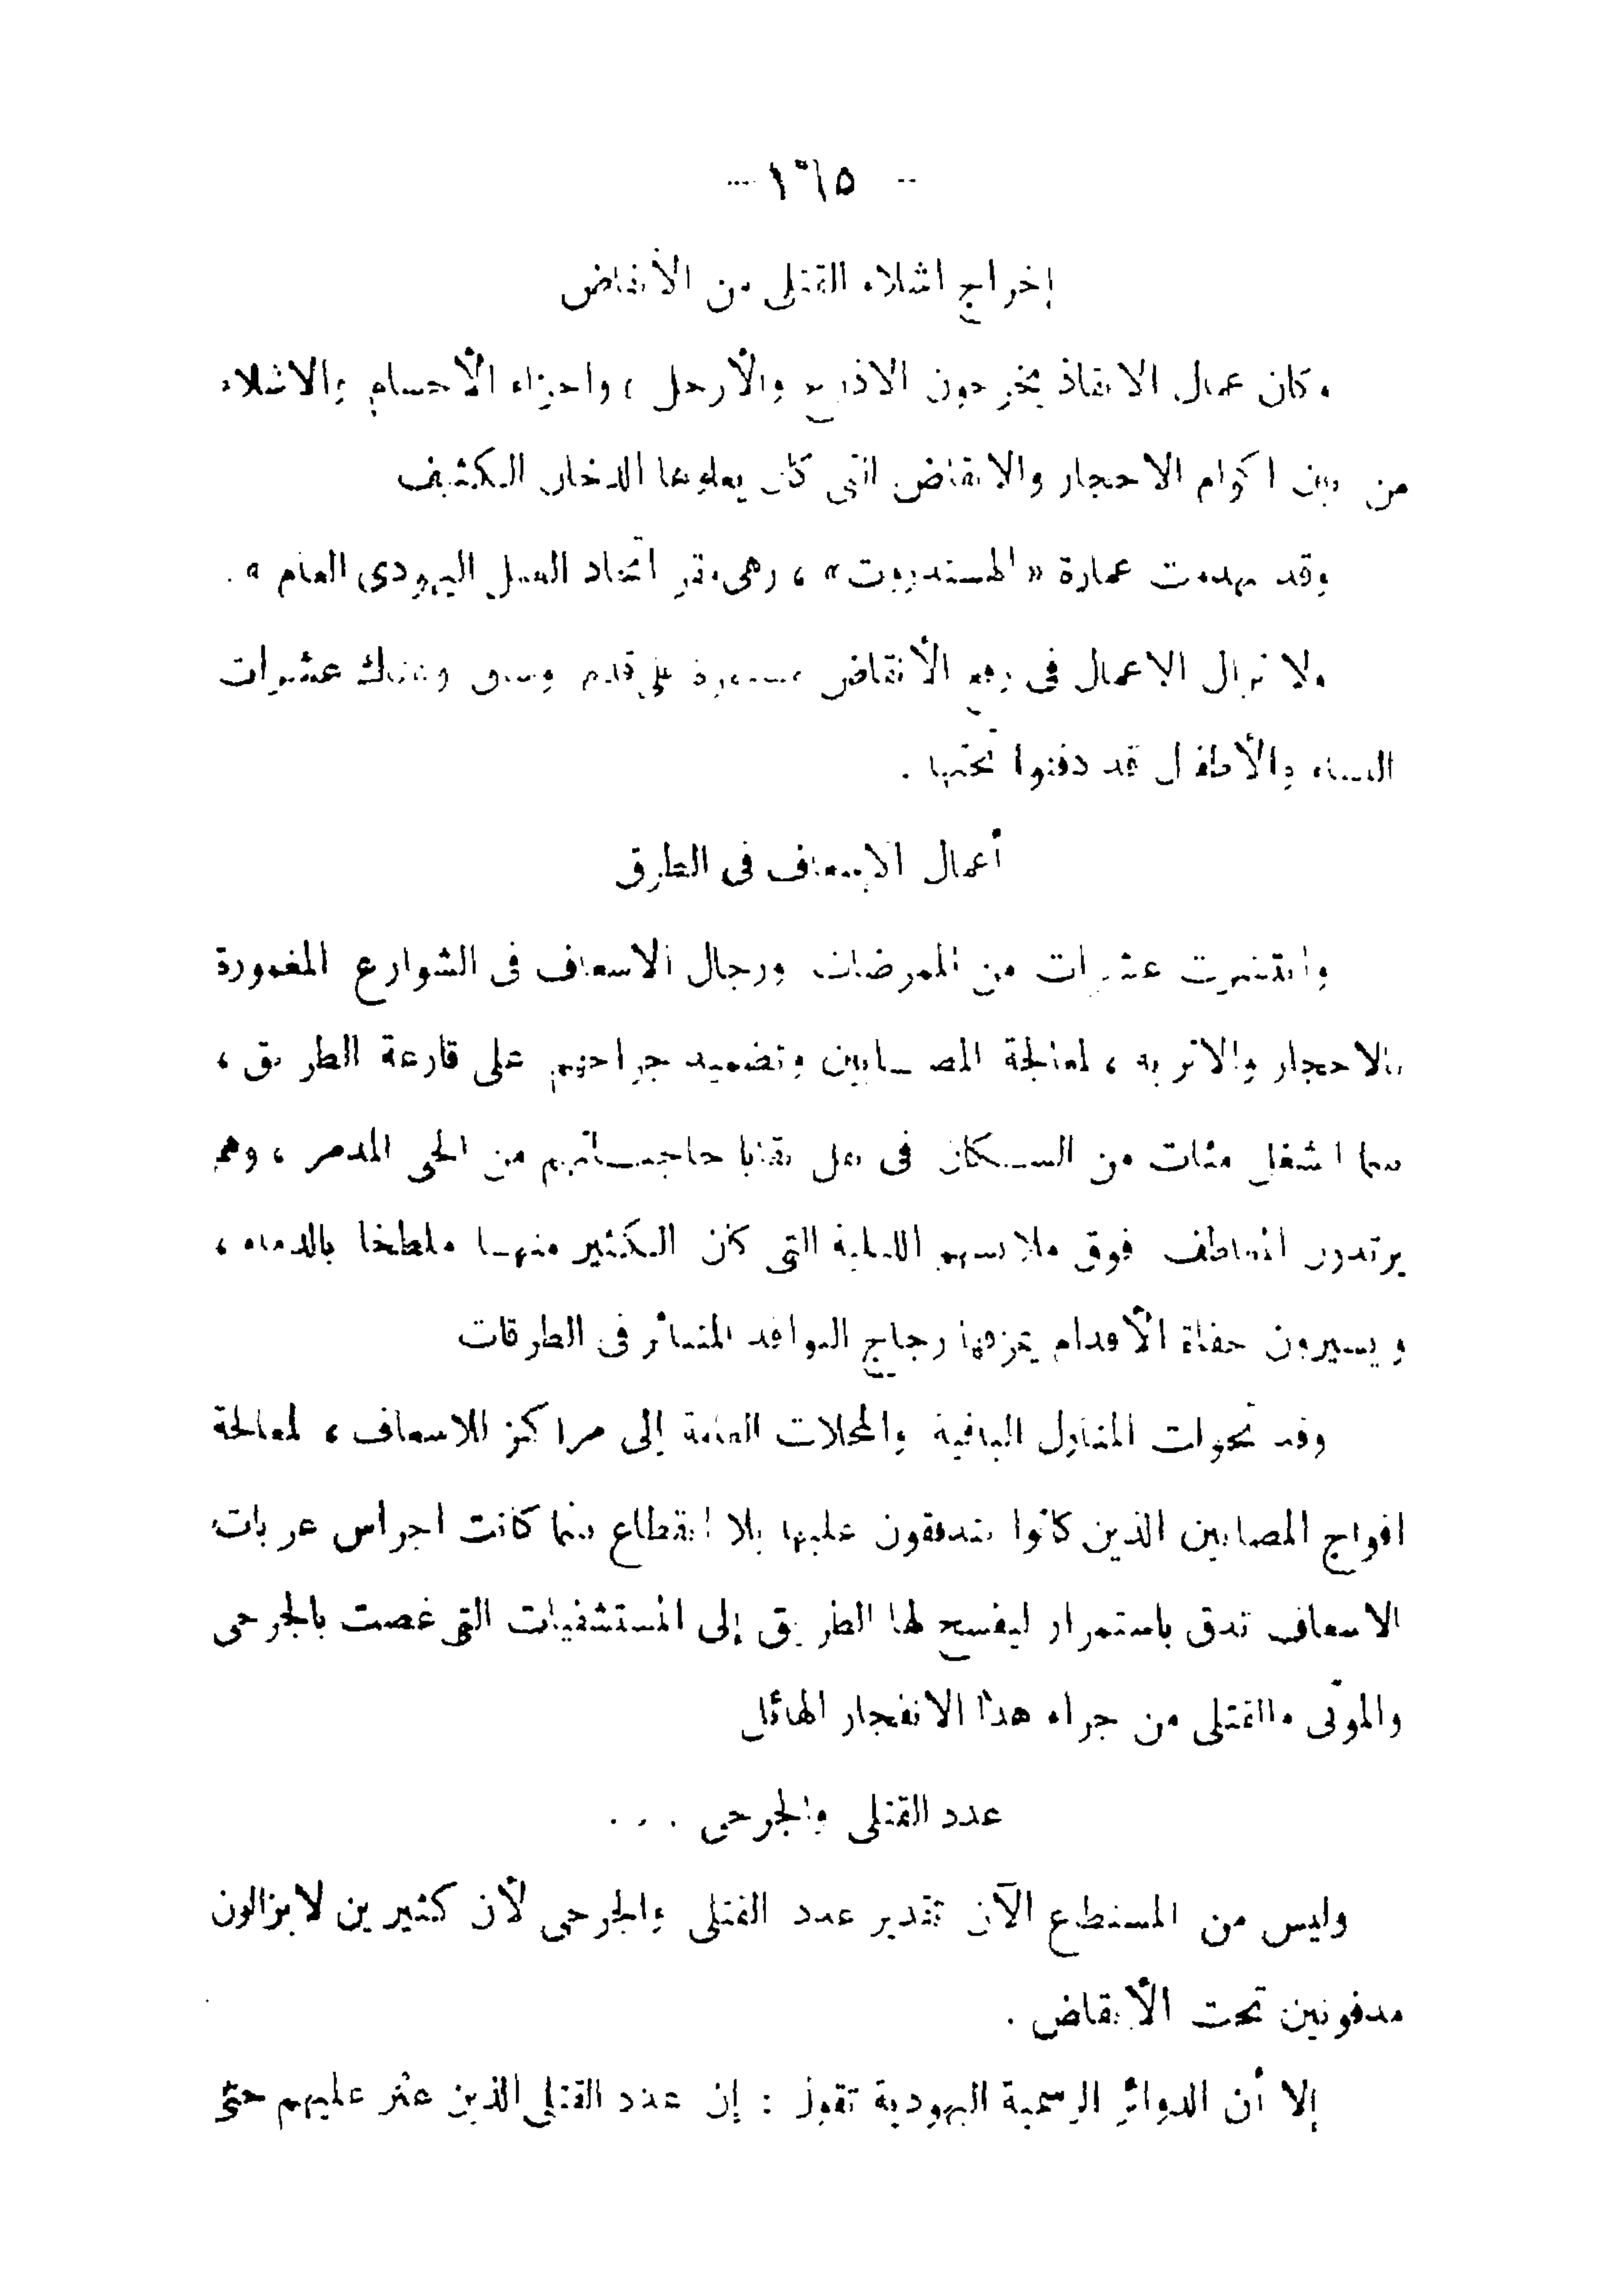 - ١٦٥ -
إخراج اشلاء القتلى من الأنقاض
وكان عمال الانقاذ يخرجون الاذرع والأرجل ، واجزاء الأجسام والاشلاء
من بين اكوام الاحجار والانقاض التى كان يعلوها الدخان الكثيف
وقد تهدمت عمارة « الهستدروت » ، وهى مقر اتحاد العمل اليهودى العام » .
ولا تزال الاعمال فى رفع الأنقاض مستمرة على قدم وساق وهناك عشرات
النساء والأطفال قد دفنوا تحتها .
أعمال الإسعاف فى الطرق
وانتشرت عشرات من الممرضات ورجال الاسعاف فى الشوارع المغمورة
بالاحجار والاتربه ، لمعالجة المصابين وتضميد جراحهم على قارعة الطريق ،
بينما اشغل مئات من السكان فى نقل بقايا حاجياتهم من الحى المدمر ، وهم
يرتدون المعاطف فوق ملابسهم الليلية التى كان الكثير منها ملطخا بالدماء ،
ويسيرون حفاة الأقدام يمزقها زجاج النوافد المتناثر فى الطرقات
وقد تحولت المنازل الباقية والمحلات العامة إلى مراكز للاسعاف ، لمعالجة
افواج المصابين الذين كانوا يتدفقون عليها بلا انقطاع بينما كانت اجراس عربات
الاسعاف تدق باستمرار ليفسح لها الطريق إلى المستشفيات التى غصت بالجرحى
والموتى والقتلى من جراء هذا الانفجار الهائل
عدد القتلى والجرحى . . .
وليس من المستطاع الآن تقدير عدد القتلى والجرحى لأن كثيرين لا يزالون
مدفونين تحت الأنقاض .
إلا أن الدوائر الرسمية اليهودية تقول : إن عدد القتلى الذين عثر عليهم حتى